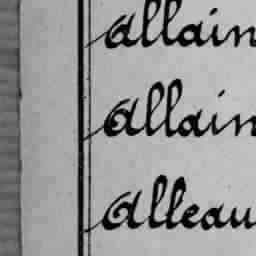 Allain
Allain
Alleau